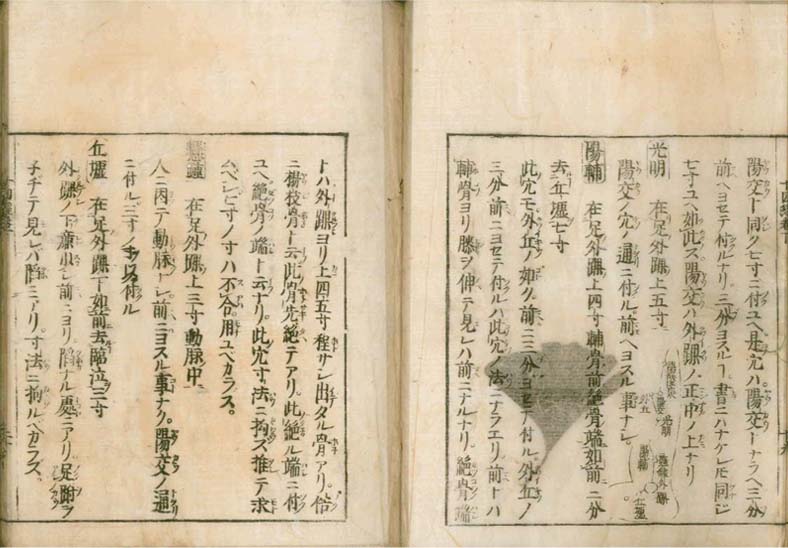 陽交ト同ク七寸ニ付ユヘ是穴ハ陽交トナラヘ三分
前ヘヨセテ付ルナリ。三分ヨスルヿ書ニハナケレ𪜈同シ
七寸ユヘ如此ス陽交ハ外踝ノ正中ノ上ナリ
光明 在足外踝上五寸
陽交ノ穴ノ通ニ付ル前ヘヨスル事ナシ
陽輔 在足外踝上四寸輔骨前絶骨端如前三分
去丘墟七寸
此穴モ外丘ノ如ク。前ニ三分ヨセテ付ル外丘ノ
三分前ニヨセテ付ルハ此穴ノ法ニナラエリ前トハ
輔骨ヨリ膝ヲ伸テ見レハ前ニナルナリ。絶骨端
外丘
光明
陽輔
丘墟
トハ外踝ヨリ上四五寸程サシ出タル骨アリ。俗
ニ楊枝骨ト云此骨先絶テアリ此絶ル端ニ付
ユヘ絶骨ノ端ト云ナリ。此穴寸法ニ拘ズ推テ求
ムベシ七寸ノ寸ハ不合用ユベカラス。
懸鐘 在足外踝上三寸動脉中
人ニ因テ動脉ナシ前ニヨスル事ナク。陽交ノ通
ニ付ル三寸ノ
丘墟 在足外踝下如前去臨泣三寸
外踝ノ下廉少シ前ニヨリ陷ナル處ニアリ足跗ヲ
チテ見レバ陷ニアリ。寸法ニ拘ルベカラス。